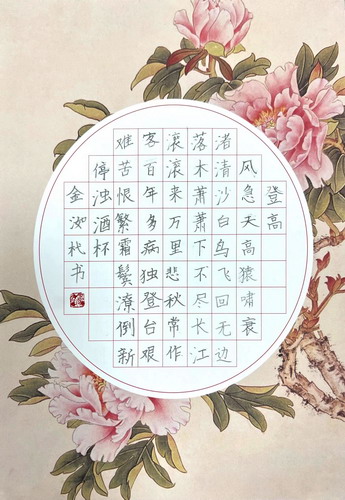 登高
风急天高猿啸衰
渚清沙白鸟飞回无边
落木萧萧下不尽长江
滚滚来万里悲秋常作
客百年多病独登台艰
难苦恨繁霜鬓潦倒新
停浊酒杯
金书